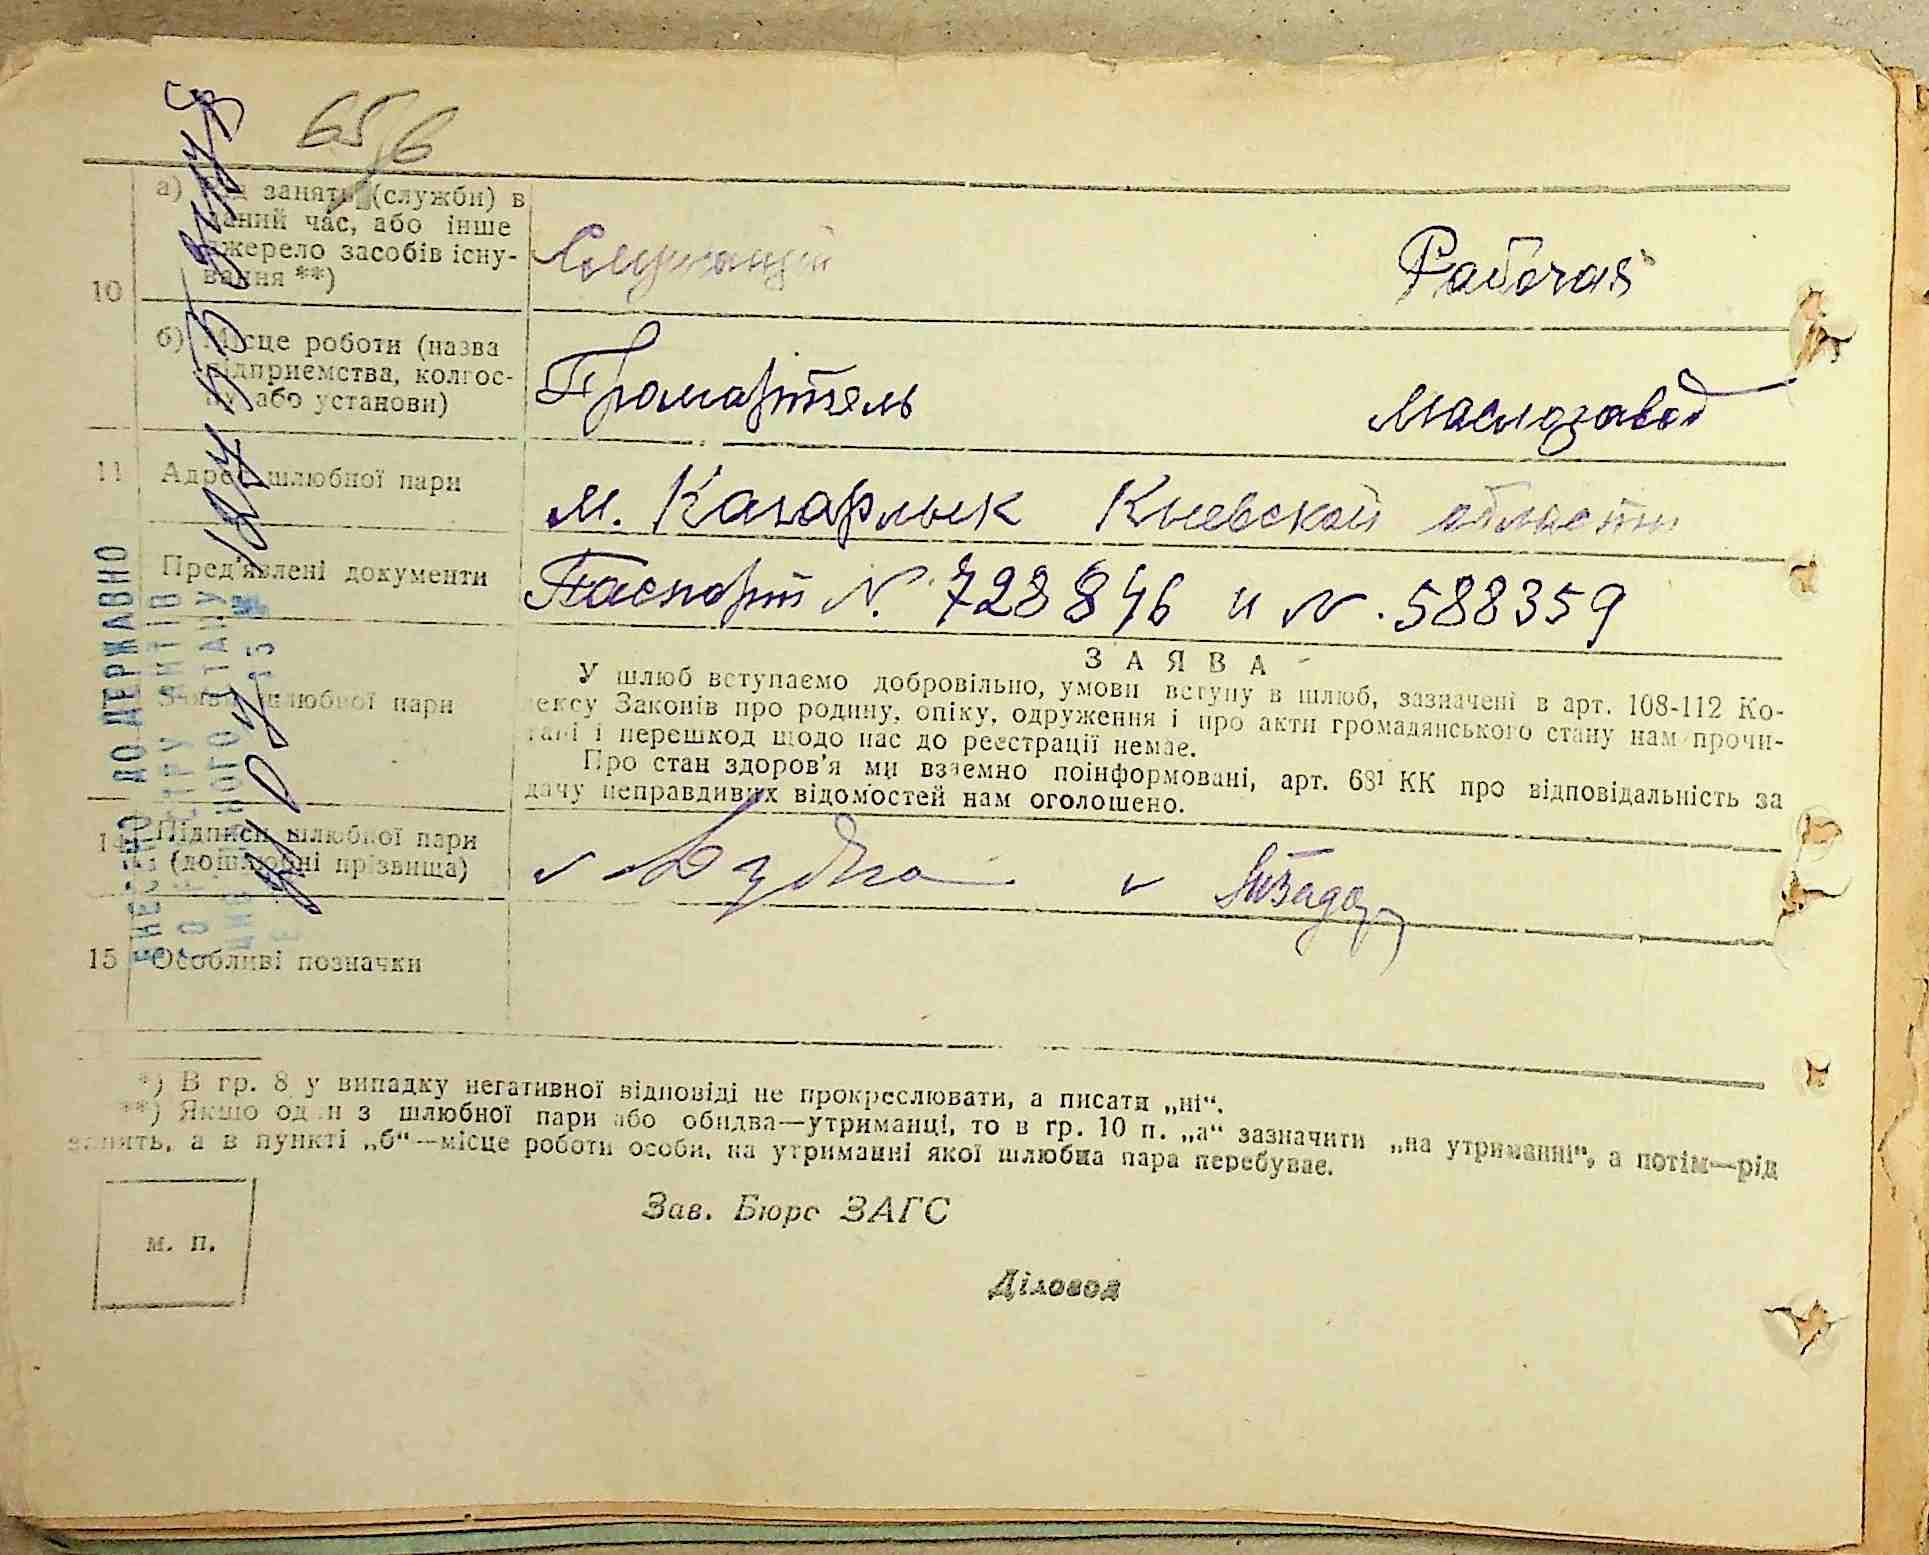 65б
а) занять (службн) в
даний час, або інше
джерело засобів існу-
вання **)
Служащий
Рабочая
10
б) Місце роботи (назва
підприємства, колгос-
пу або установи)
Промартель
маслозавод
11 Адрес шлюбної пари
м. Кагарлык Киевской области
Пред'явлені документи
Паспорт N. 728846 и N. 588359
ЗАЯВА
шлюбної пари
У шлюб вступаємо добровільно, умови вступу в шлюб, зазначені в арт. 108-112 Ко-
дексу Законів про родину, опіку, одруження і про акти громадянського стану нам прочи-
тані і перешкод щодо нас до реєстрації немає.
Про стан здоров'я ми взаємно поінформовані, арт. 68¹ КК про відповідальність за
дачу неправдивих відомостей нам оголошено.
14 Підписи шлюбної пари
(дошлюбні прізвища)
15 Особливі позначки
ВНЕСЕНО ДО ДЕРЖАВНО
ГО РЕЄСТРУ АКТІВ
*) В гр. 8 у випадку негативної відповіді не прокреслювати, а писати „ні“.
**) Якщо один з шлюбної пари або обидва—утриманці, то в гр. 10 п. „а“ зазначити „на утриманні“, а потім—рід
занять, а в пункті „б“—місце роботи особи, на утриманні якої шлюбна пара перебуває.
Зав. Бюро ЗАГС
м. п.
Діловод